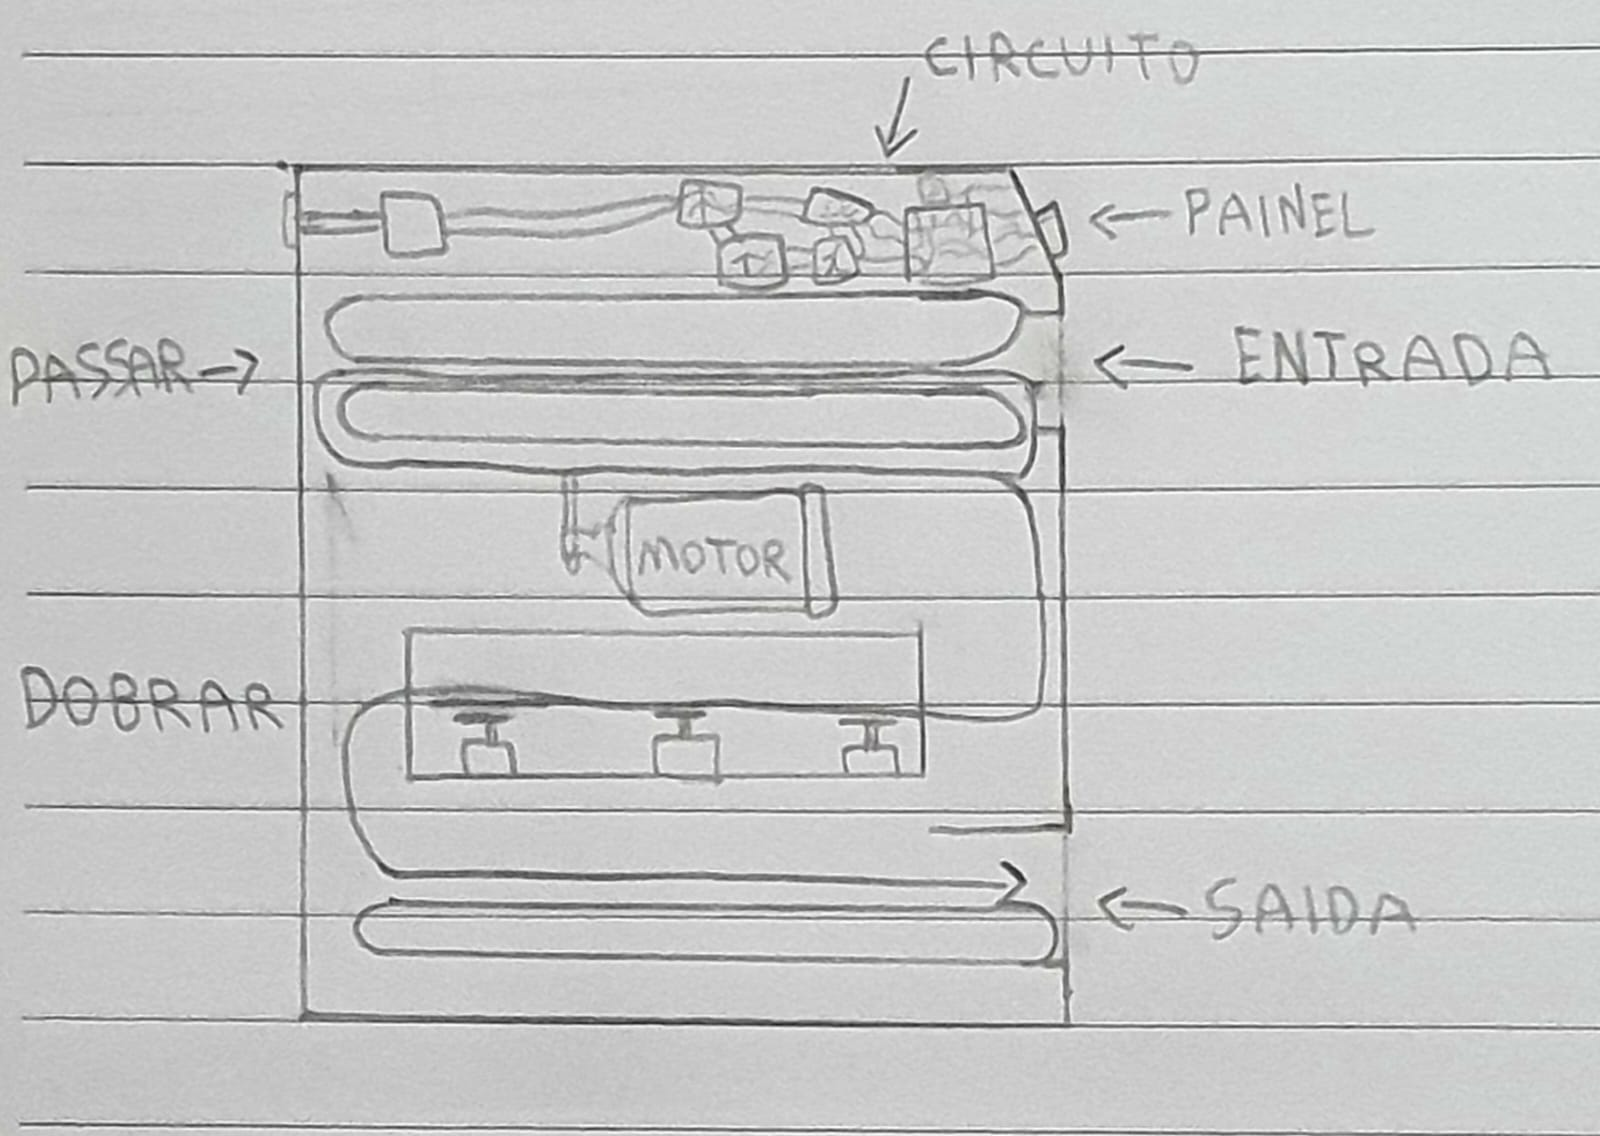 CIRCUITO
PAINEL
PASSAR
ENTRADA
MOTOR
DOBRAR
SAIDA